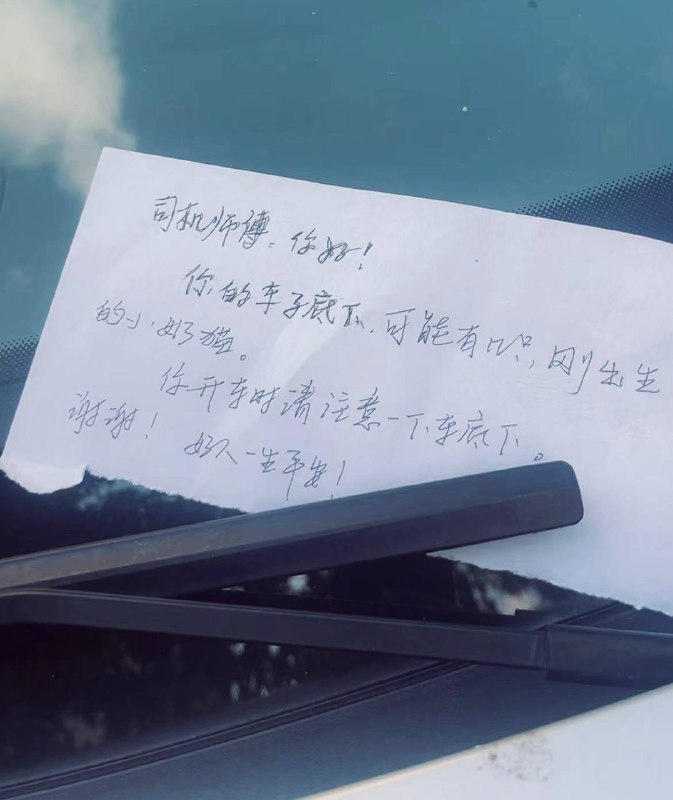 司机师傅：你好！
你的车子底下，可能有只，刚出生
的小奶猫。
你开车时请注意一下车底下。
谢谢！ 好人一生平安！